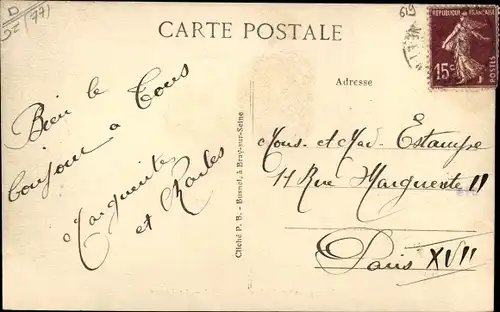 D
(77)
619
CARTE POSTALE
REPUBLIQUE FRANÇAISE
15c
POSTES
Adresse
Bien le
bonjour à Tous
Marguerite
et Charles
Cliché P. B. - Bosnel, à Bray-sur-Seine
Mons. et Mad. Estampe
14 Rue Marguerite
Paris XVII